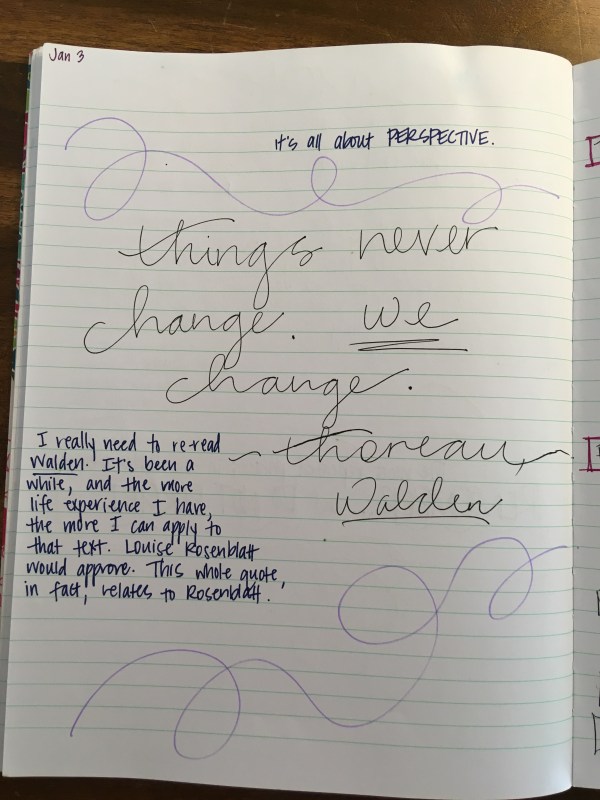 Jan 3
it's all about PERSPECTIVE.
things never
change. we
change.
~ thoreau, ~
Walden
I really need to re-read
Walden. It's been a
while, and the more
life experience I have,
the more I can apply to
that text. Louise Rosenblatt
would approve. This whole quote,
in fact, relates to Rosenblatt.